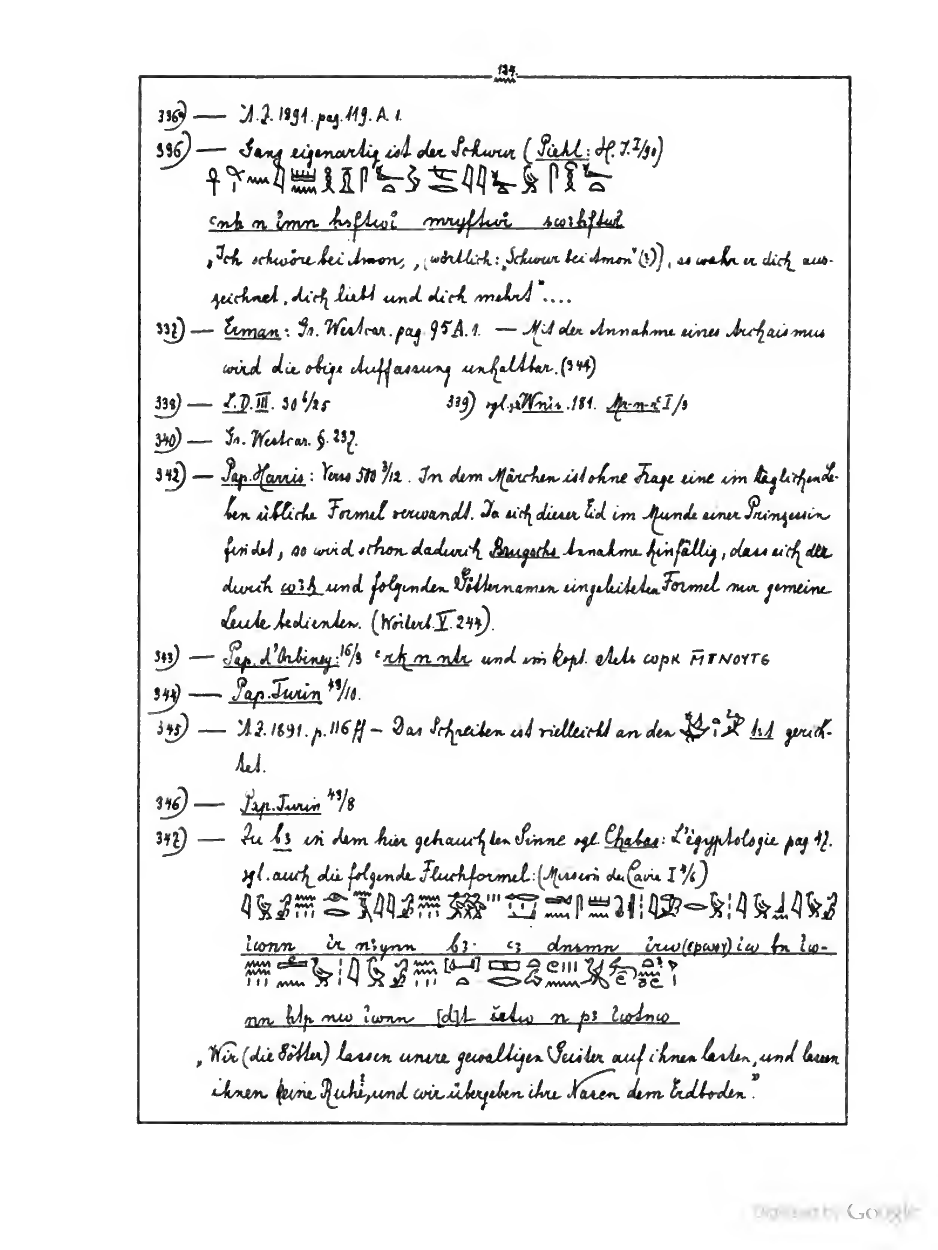 134.
336a) — Ä.Z. 1891. pag. 119. A. 1.
336) — Ganz eigenartig ist der Schwur (Piehl: H. J. I/90)
ꜥnḫ n imn ḥsftwi mryftwi swꜣḥftwi
„Ich schwöre bei Amon, (wörtlich: „Schwur bei Amon" (?)), so wahr er dich aus-
zeichnet, dich liebt und dich mehrt"....
337) — Erman: Gr. Westcar. pag. 95 A. 1. — Mit der Annahme eines Archaismus
wird die obige Auffassung unhaltbar. (344)
338) — L.D. III. 30 b/25 339) vgl. Wnis. 181. Mr-n-rꜥ I/3
340) — Gr. Westcar. §. 237.
342) — Pap. Harris: Verso 500 3/12. In dem Märchen ist ohne Frage eine im täglichen Le-
ben übliche Formel verwandt. Da sich dieser Eid im Munde einer Prinzessin
findet, so wird schon dadurch Brugschs Annahme hinfällig, dass sich der
durch wꜣḥ und folgenden Götternamen eingeleiteten Formel nur gemeine
Leute bedienten. (Wörterb. V. 244).
343) — Pap. d'Orbiney: 16/3 ꜥrk n ntr und im kopt. stets ⲱⲣⲕ ⲙ̄ⲡⲛⲟⲩⲧⲉ
344) — Pap. Turin 49/10.
345) — Ä.Z. 1891. p. 116 ff — Das Schreiben ist vielleicht an den gerich-
tet.
346) — Pap. Turin 43/8
347) — Zu bꜣ in dem hier gebrauchten Sinne vgl. Chabas: L'égyptologie pag 47.
vgl. auch die folgende Fluchformel: (Mission du Caire I 9/6)
iwnn ir nꜣynn bꜣ ꜥꜣ dnsmn irw (ⲉⲣⲱⲟⲩ) iw bn iw-
nn ḥtp nw iwnn [d]t šrtw n pꜣ iwtnw
„Wir (die Götter) lassen unsere gewaltigen Geister auf ihnen lasten, und lassen
ihnen keine Ruhe, und wir übergeben ihre Nasen dem Erdboden."
Digitized by Google